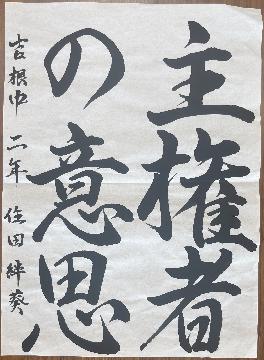 主権者
の意思
吉根中 二年 住田絆葵